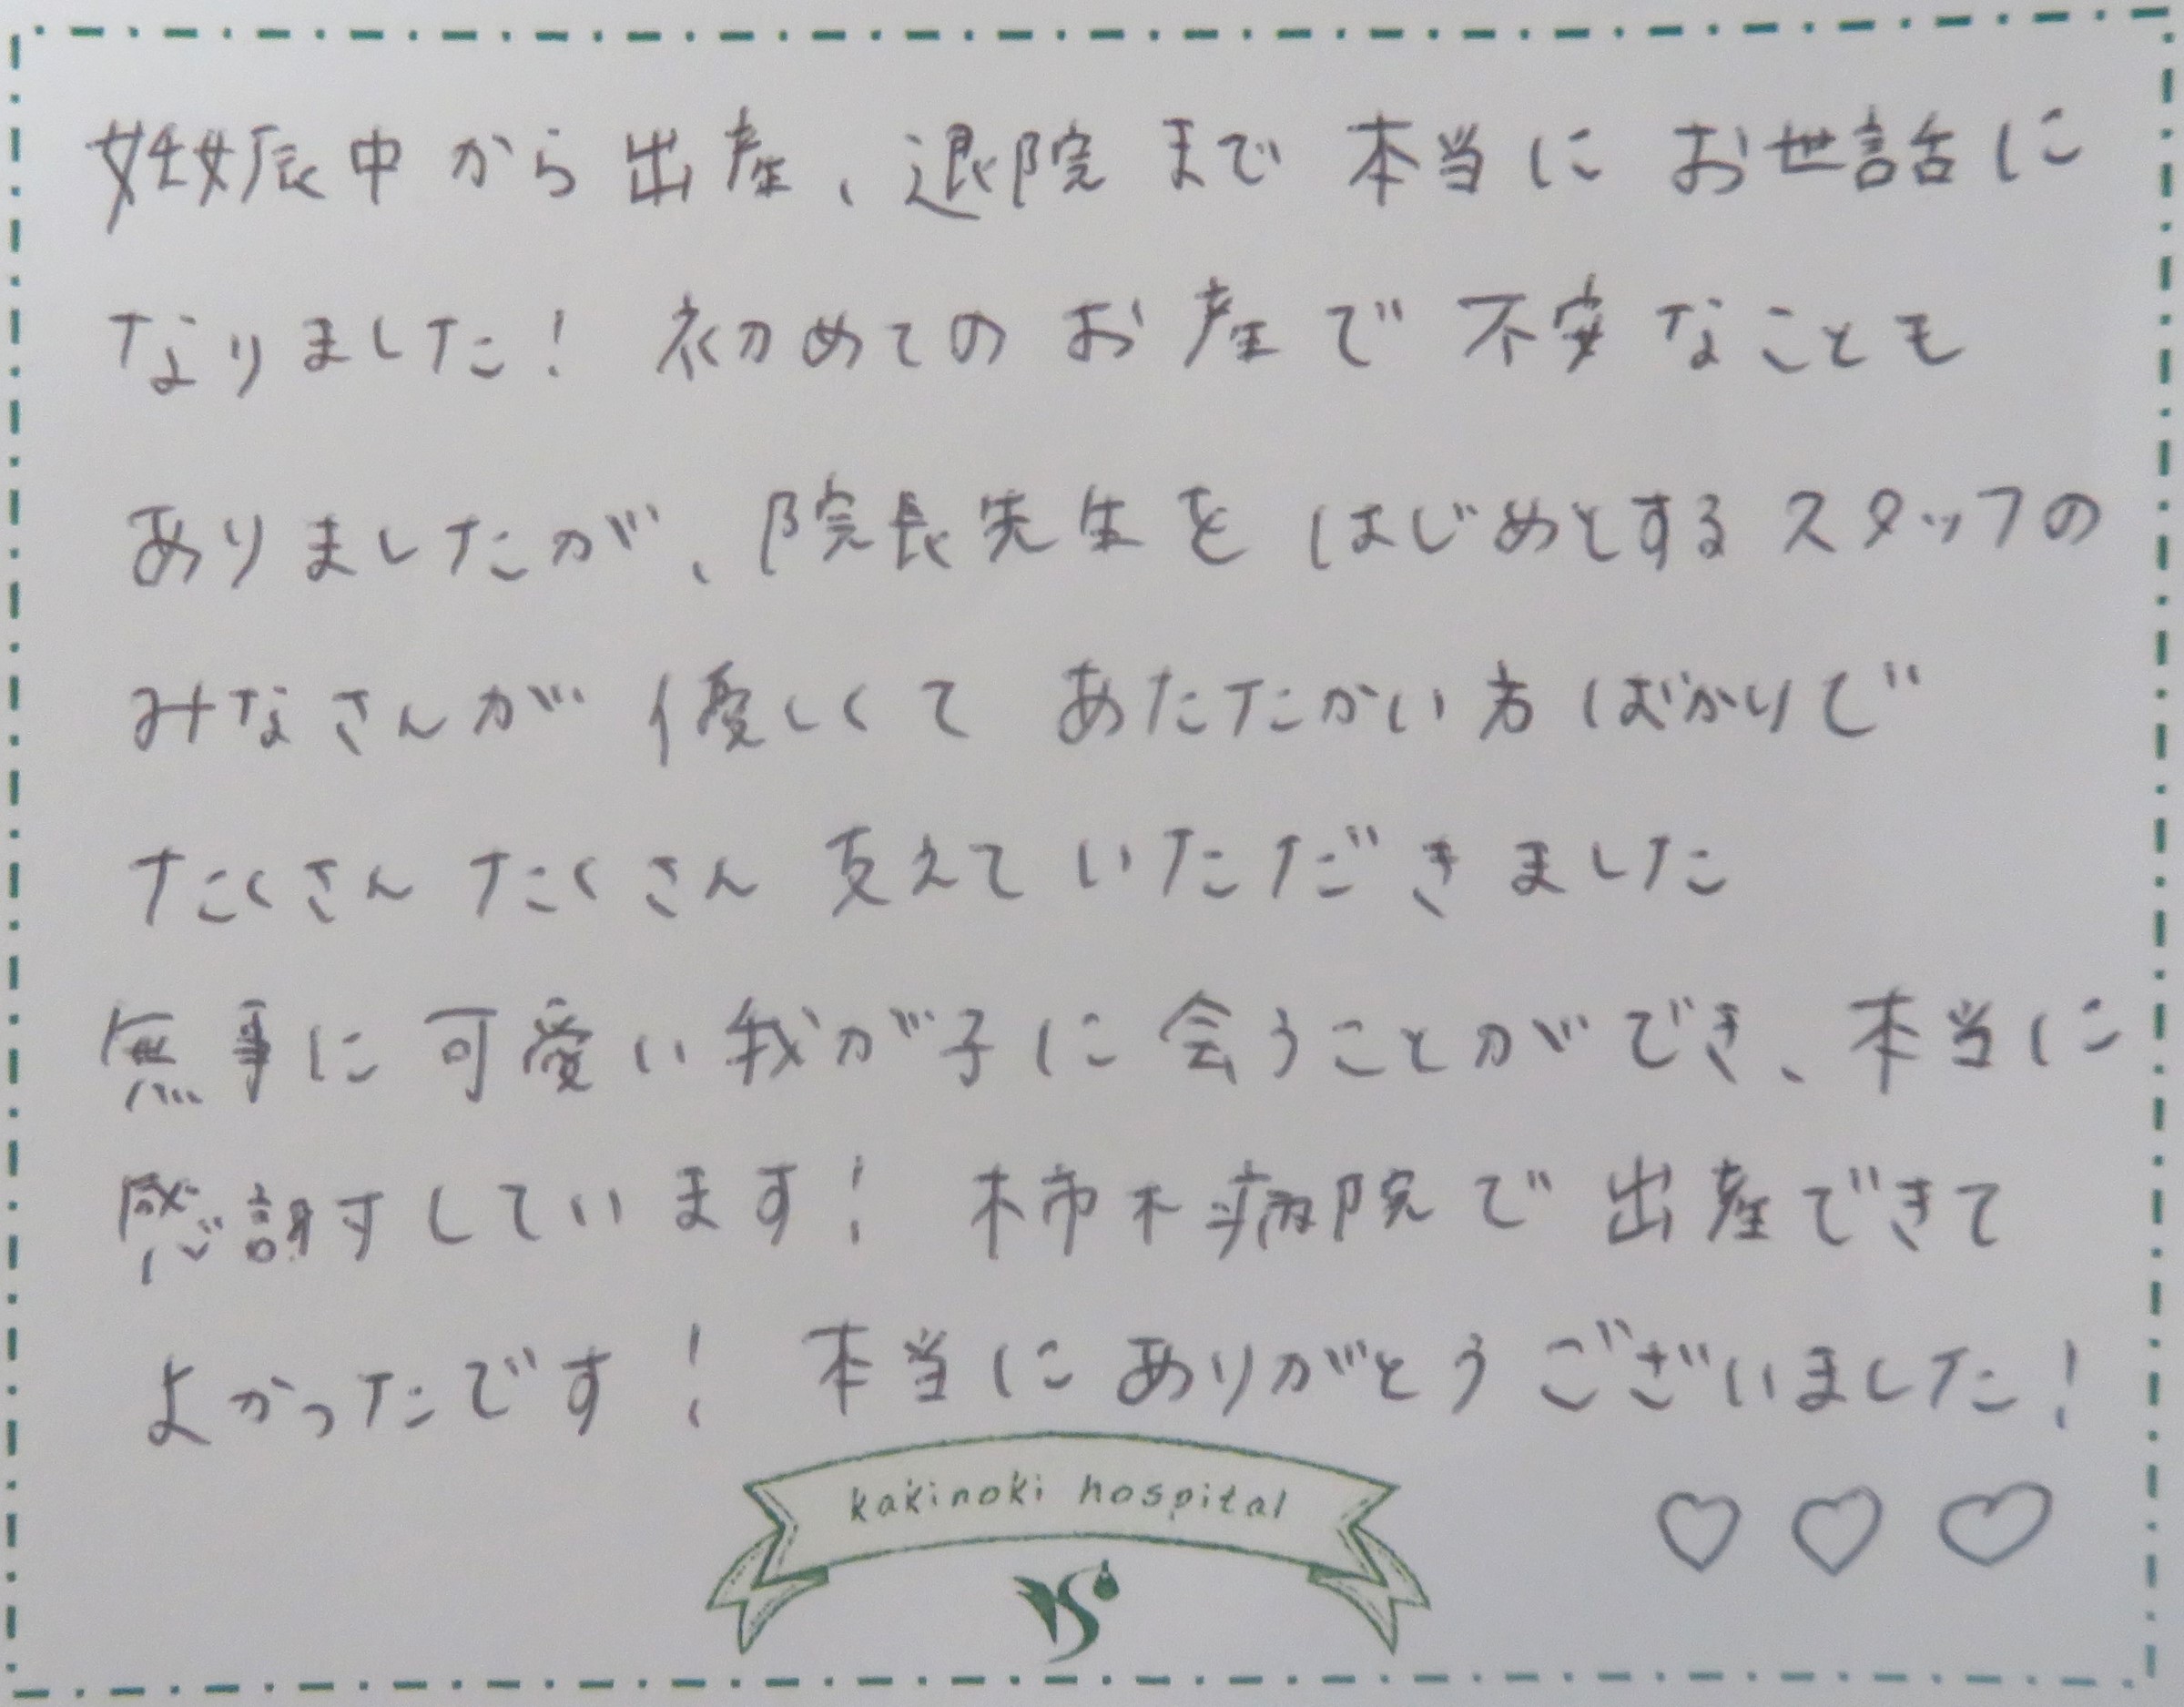 妊娠中から出産、退院まで本当にお世話に
なりました！ 初めてのお産で不安なことも
ありましたが、院長先生をはじめとするスタッフの
みなさんが優しくてあたたかい方ばかりで
たくさんたくさん支えていただきました
無事に可愛い我が子に会うことができ、本当に
感謝しています！ 柿木病院で出産できて
よかったです！ 本当にありがとうございました！
kakinoki hospital
♡ ♡ ♡